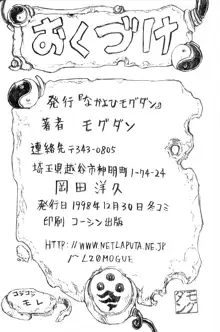 おくづけ
発行『なかよひモグダン』
著者 モグダン
連絡先 〒343-0805
埼玉県越谷市神明町1-74-24
岡田洋久
発行日1998年12月30日 冬コミ
印刷 コーシン出版
HTTP://WWW.NETLAPUTA.NE.JP
/~L20MOGUE